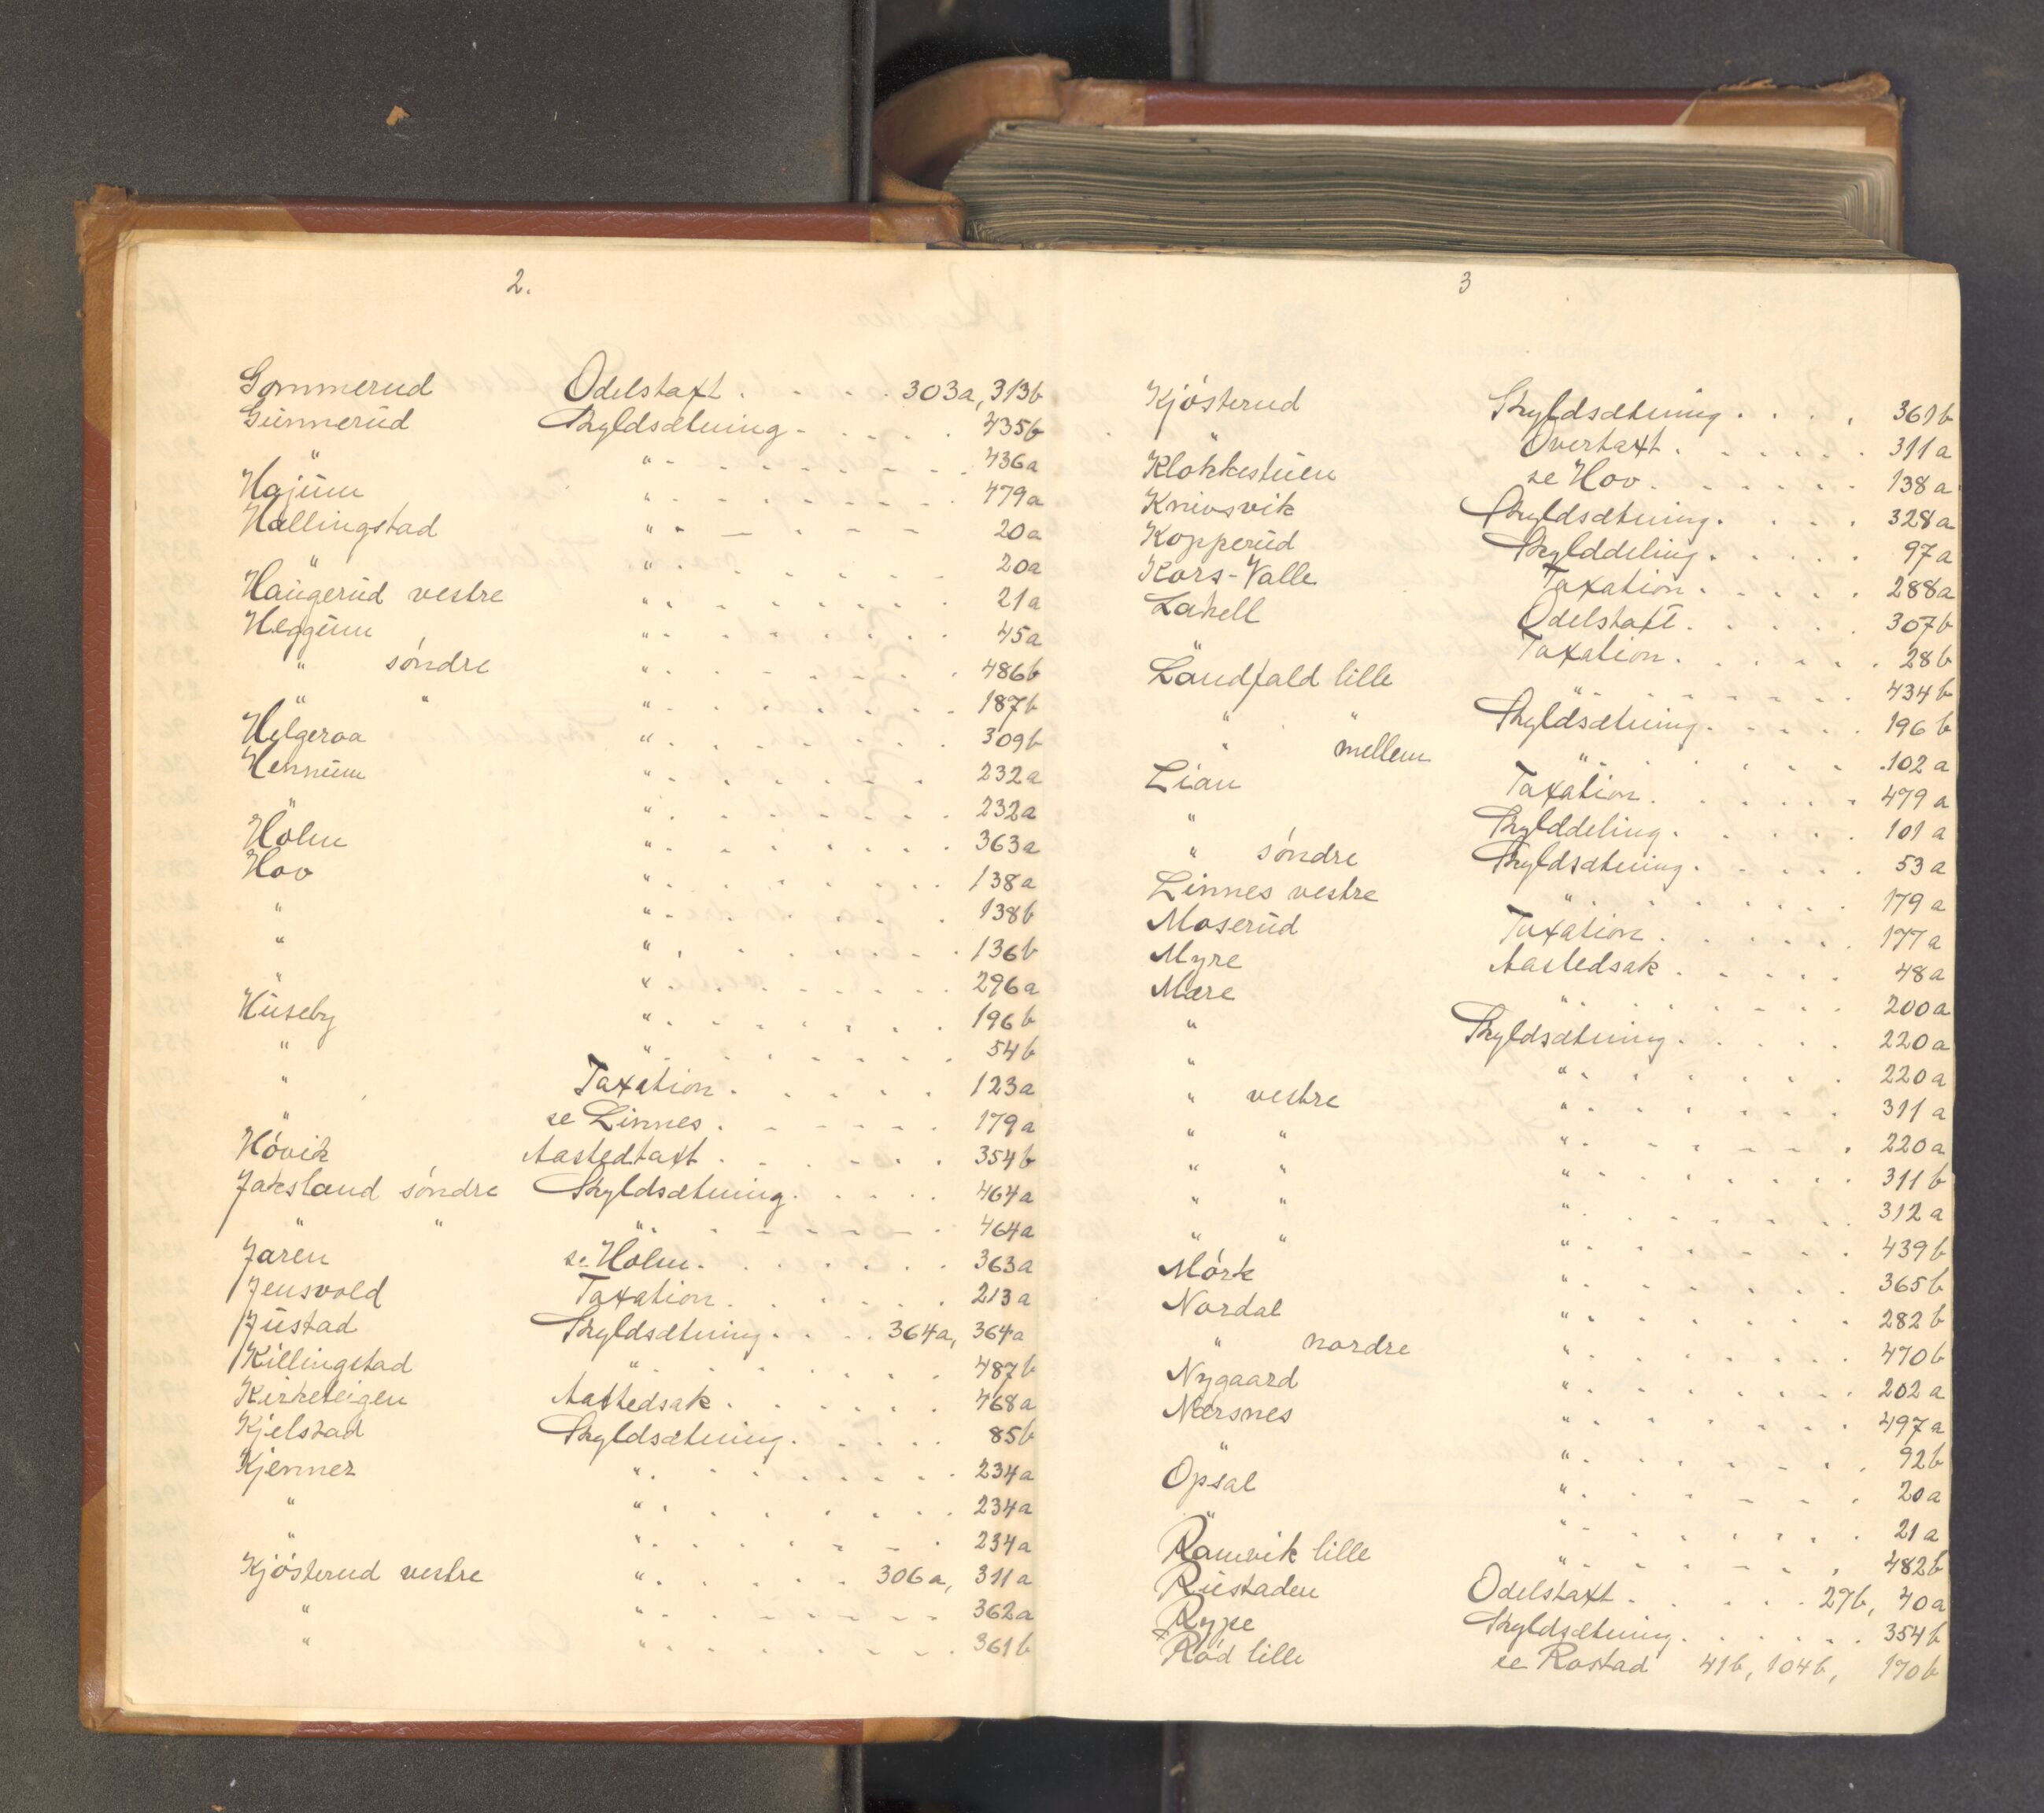 2.
Gommerud Odelstaxt . . . . 303a, 313b
Gunnerud Skyldsætning . . . . . 435b
" " . . . . . . . . 436a
Hajum " . . . . . . . . 479a
Hallingstad " . . . . . 20a
" " . . . . . . . 20a
Haugerud vestre " . . . . . . . 21a
Heggum " . . . . . . . 45a
" søndre " . . . . . . . 486b
" " " . . . . . . . 187b
Helgeroa " . . . . . . . 309b
Hennum " . . . . . . . 232a
" " . . . . . . . 232a
Holm " . . . . . . . 363a
Hov " . . . . . . . 138a
" " . . . . . . . 138b
" " . . . . . . . 136b
" " . . . . . . . 296a
Huseby " . . . . . . . 196b
" " . . . . . . . 54b
" Taxation . . . . . . 123a
" se Linnes . . . . . . 179a
Hövik Aastedtaxt . . . . . 354b
Jaksland søndre Skyldsætning . . . . . 464a
" " " . . . . . . . 464a
Jaren se Holm . . . . . . 363a
Jensvold Taxation . . . . . . 213a
Justad Skyldsætning . . . . 364a, 364a
Killingstad " . . . . . . . 487b
Kirketeigen Aastedsak . . . . . . 468a
Kjelstad Skyldsætning . . . . . 85b
Kjenner " . . . . . . . 234a
" " . . . . . . . 234a
" " . . . . . . . 234a
Kjösterud vestre " . . . . . 306a, 311a
" " . . . . . . . 362a
" " . . . . . . . 361b
3
Kjösterud Skyldsætning . . . . 361b
" Overtaxt . . . . . . 311a
Klokkestuen se Hov . . . . . . 138a
Knivsvik Skyldsætning . . . . 328a
Kopperud Skylddeling . . . . . 97a
Kors-Valle Taxation . . . . . 288a
Lahell Odelstaxt . . . . . 307b
" Taxation . . . . . . 28b
Landfald lille " . . . . . . . 434b
" " Skyldsætning . . . . . 196b
" mellem " . . . . . . . 102a
Lian Taxation . . . . . . 479a
" Skylddeling . . . . . 101a
" søndre Skyldsætning . . . . . 53a
Linnes vestre " . . . . . . . 179a
Moserud Taxation . . . . . . 177a
Myre Aastedsak . . . . . 48a
Mære " . . . . . . . 200a
" Skyldsætning . . . . . 220a
" " . . . . . . . 220a
" vestre " . . . . . . . 311a
" " " . . . . . . . 220a
" " " . . . . . . . 311b
" " " . . . . . . . 312a
" " " . . . . . . . 439b
Mörk " . . . . . . . 365b
Nordal " . . . . . . . 282b
" nordre " . . . . . . . 470b
Nygaard " . . . . . . . 202a
Nærsnes " . . . . . . . 497a
" " . . . . . . . 92b
Opsal " . . . . . . . 20a
" " . . . . . . . 21a
Ramvik lille " . . . . . . . 482b
Rustaden Odelstaxt . . . . . 27b, 40a
Rype Skyldsætning . . . . . . 354b
Röd lille se Rostad 41b, 104b, 170b